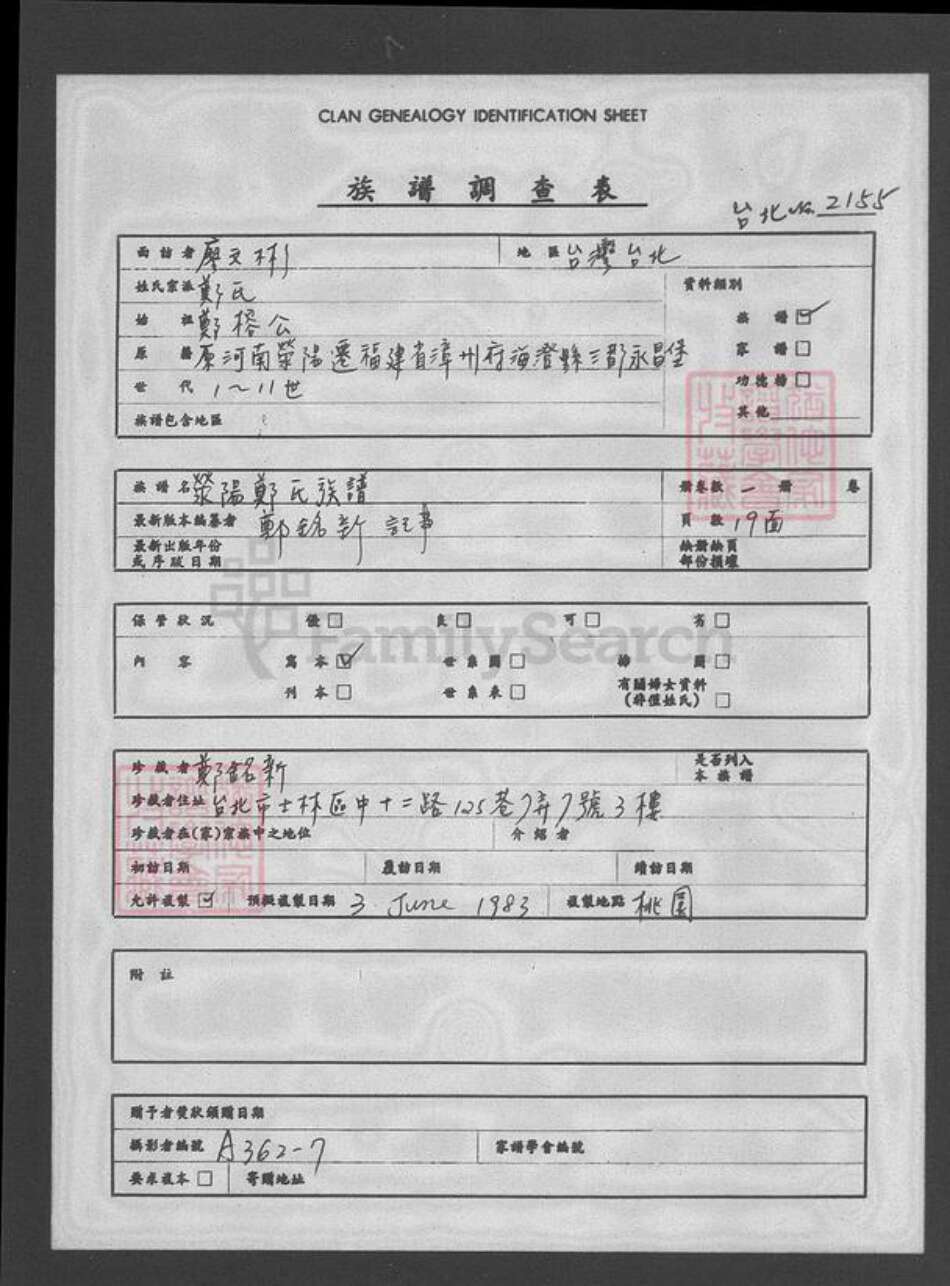 CLAN GENEALOGY IDENTIFICATION SHEET
族譜調查表
台北 No. 2155
面訪者 廖文彬 地區 台灣台北
姓氏宗派 鄭氏 資料類別
始祖 鄭榕公 族譜 ☑
原籍 原河南滎陽遷福建省漳州府海澄縣三都永昌堡 家譜 □
世代 1~11世 功德榜 □
族譜包含地區 其他
族譜名 滎陽鄭氏族譜 冊卷數 一 冊 卷
最新版本編纂者 鄭銘新 記事 頁數 19面
最新出版年份 缺冊缺頁
或序跋日期 部份損壞
保管狀況 優 □ 良 □ 可 □ 劣 □
內容 寫本 ☑ 世系圖 □ 婦團 □
刊本 □ 世系表 □ 有關婦女資料
(非僅姓氏) □
珍藏者 鄭銘新 是否列入
本族譜
珍藏者住址 台北市士林區中十二路125巷7弄7號3樓
珍藏者在(家)宗族中之地位 介紹者
初訪日期 覆訪日期 續訪日期
允許複製 ☑ 預擬複製日期 3 June 1983 複製地點 桃園
附註
贈予者獎狀頒贈日期
攝影者編號 A362-7 家譜學會編號
要求複本 □ 寄贈地址
FamilySearch